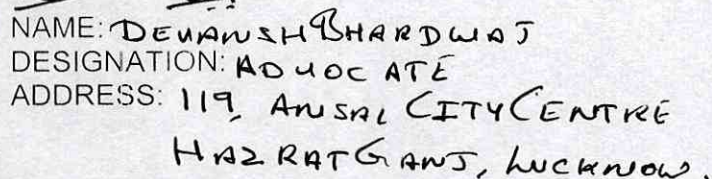 NAME: DEVANSH BHARDWAJ
DESIGNATION: ADVOCATE
ADDRESS: 119, ANSAL CITY CENTRE
HAZRATGANJ, LUCKNOW.